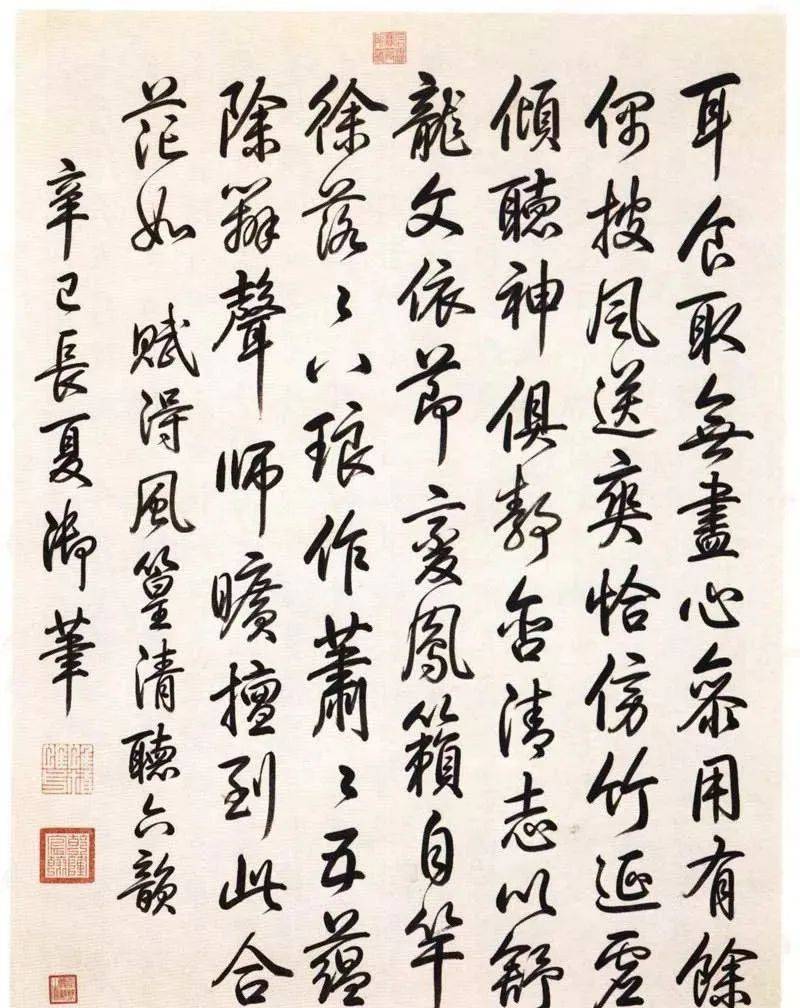 耳食取無盡心參用有餘
偶披風送爽恰傍竹延虛
傾聽神俱靜含清志以舒
龍文依節鳳籟自竿
徐落〻八琅作蕭〻五蘊
除辨聲師曠擅到此合
茫如 賦得風篁清聽六韻
辛巳長夏御筆
乾隆宸翰